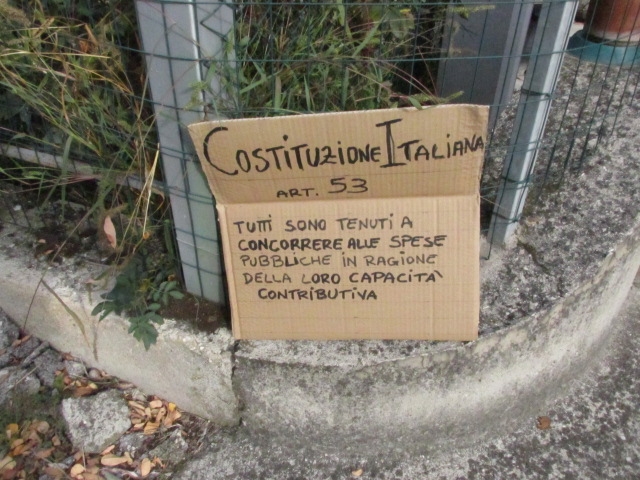 COSTITUZIONE ITALIANA
ART. 53
TUTTI SONO TENUTI A
CONCORRERE ALLE SPESE
PUBBLICHE IN RAGIONE
DELLA LORO CAPACITA'
CONTRIBUTIVA